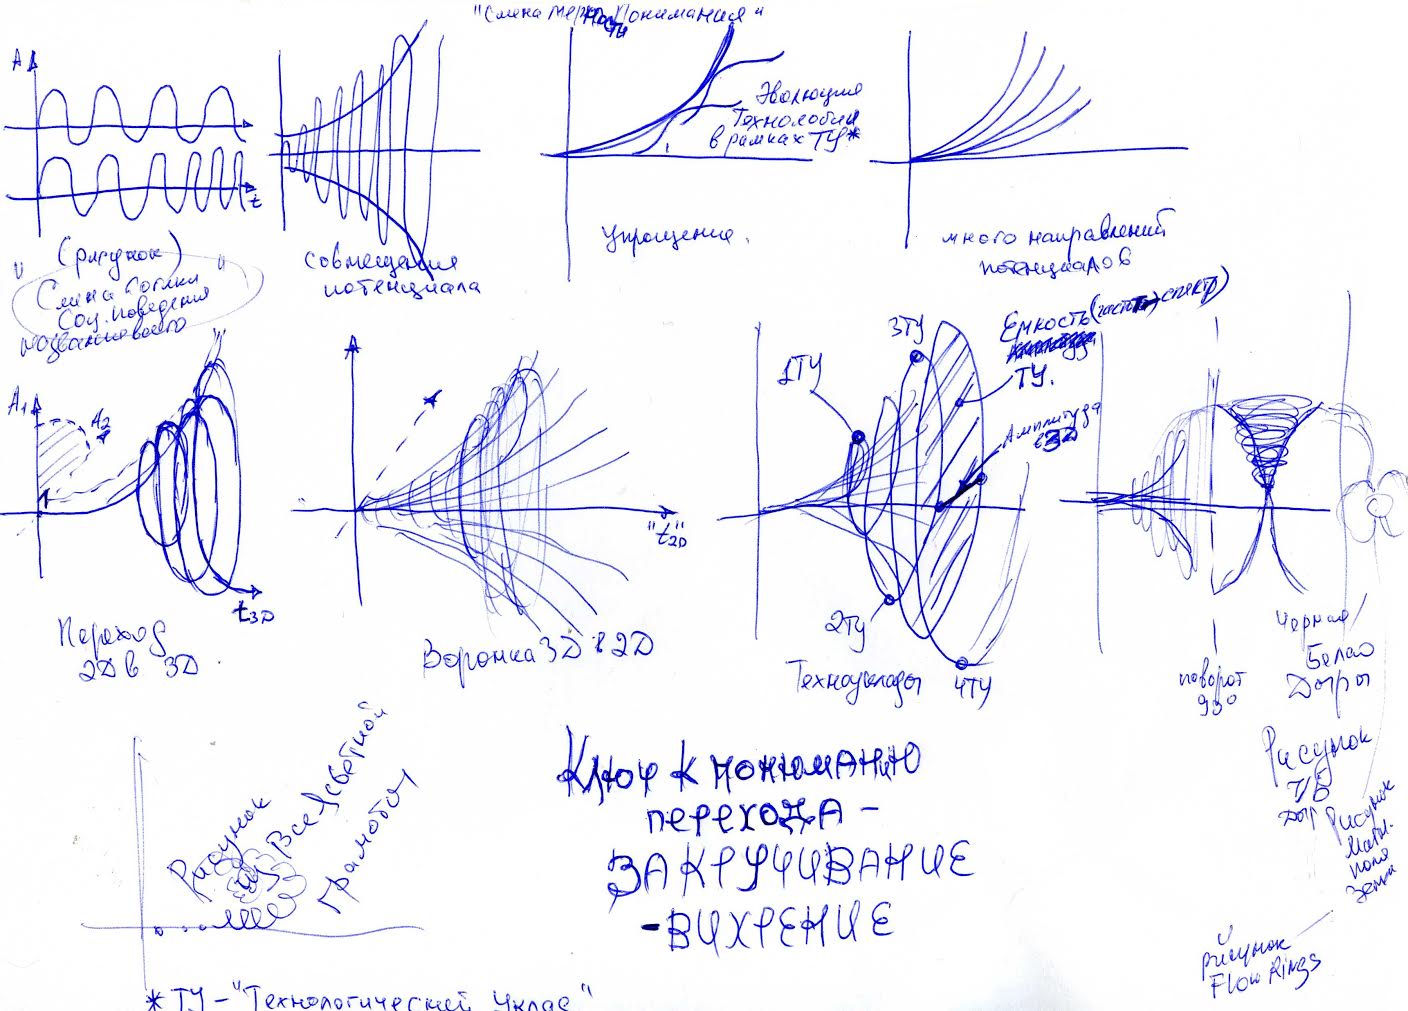 "Смена Мерности Понимания"
A
t
(рисунок)
"Смена Логики
Соц. поведения
Совмещения
потенциала
Эволюция
Технологий
в рамках ТУ*
Упрощение.
много направлений
потенциалов
A₁
A₂
t3D
Переход
2D в 3D
A
"t2D"
Воронка 3D в 2D
1ТУ
3ТУ
2ТУ
4ТУ
Емкость (частот спектр)
ТУ.
Амплитуда
в 3D
Техноуклады
поворот
90°
Черная/
Белая
Дыры
Рисунок
Ч/Б
Дыр
Рисунок
Магн.
поля
Земли
рисунок
Flow Rings
Рисунок
ВсеЯСветной
Грамоты
Ключ к пониманию
перехода -
ЗАКРУЧИВАНИЕ
-ВИХРЕНИЕ
* ТУ - "Технологический Уклад"